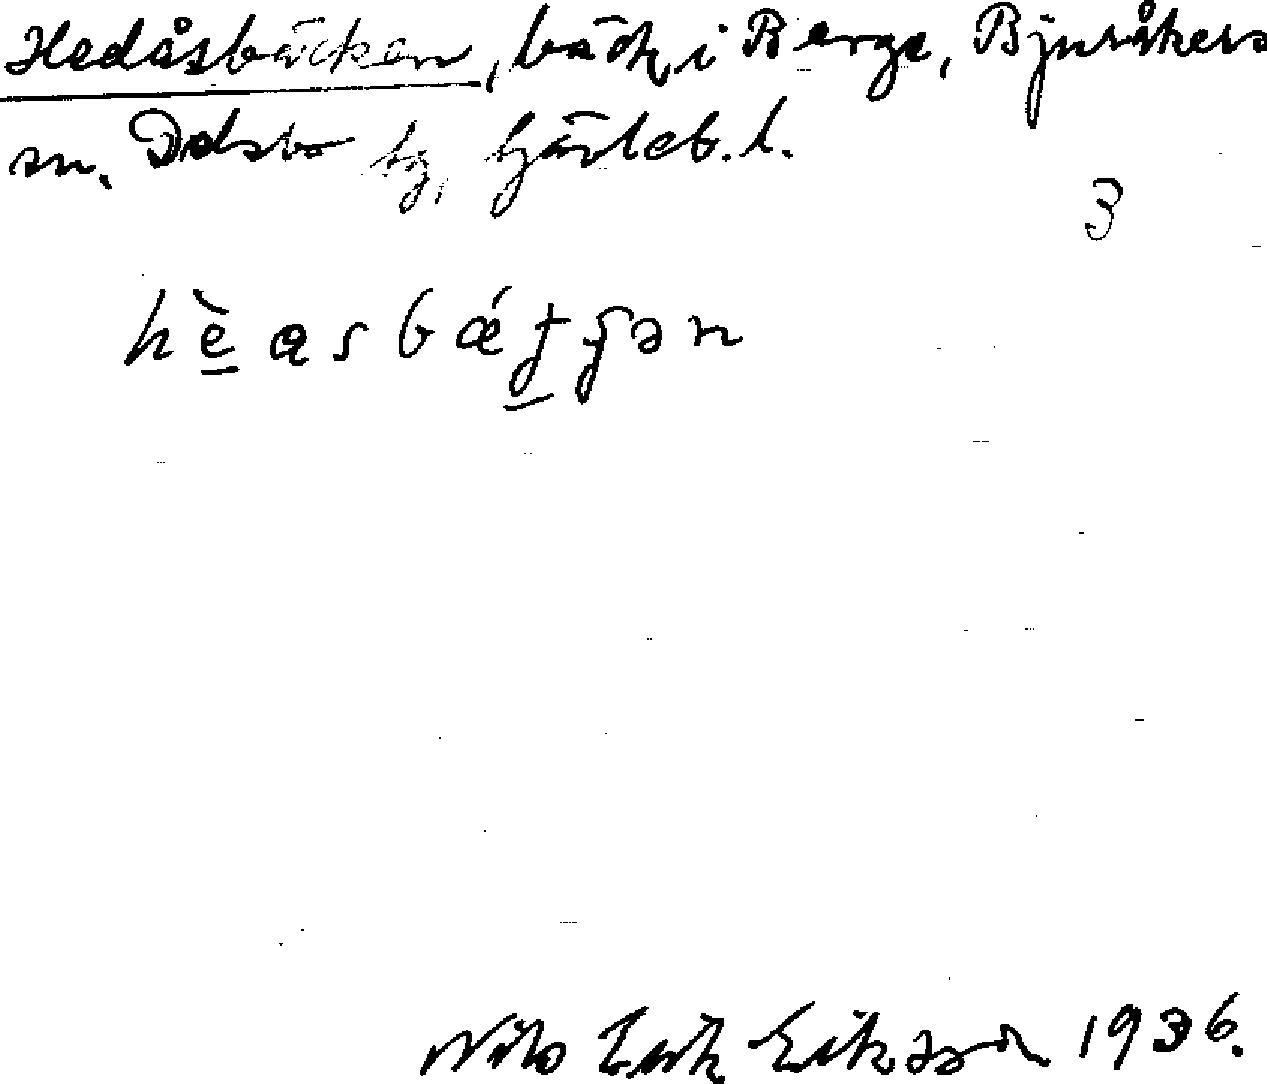 Hedåsbäcken, bäck i Berge, Bjuråkers
sn. Delsbo tg, Gävleb. l.
3
Nils Erik Eriksson 1936.